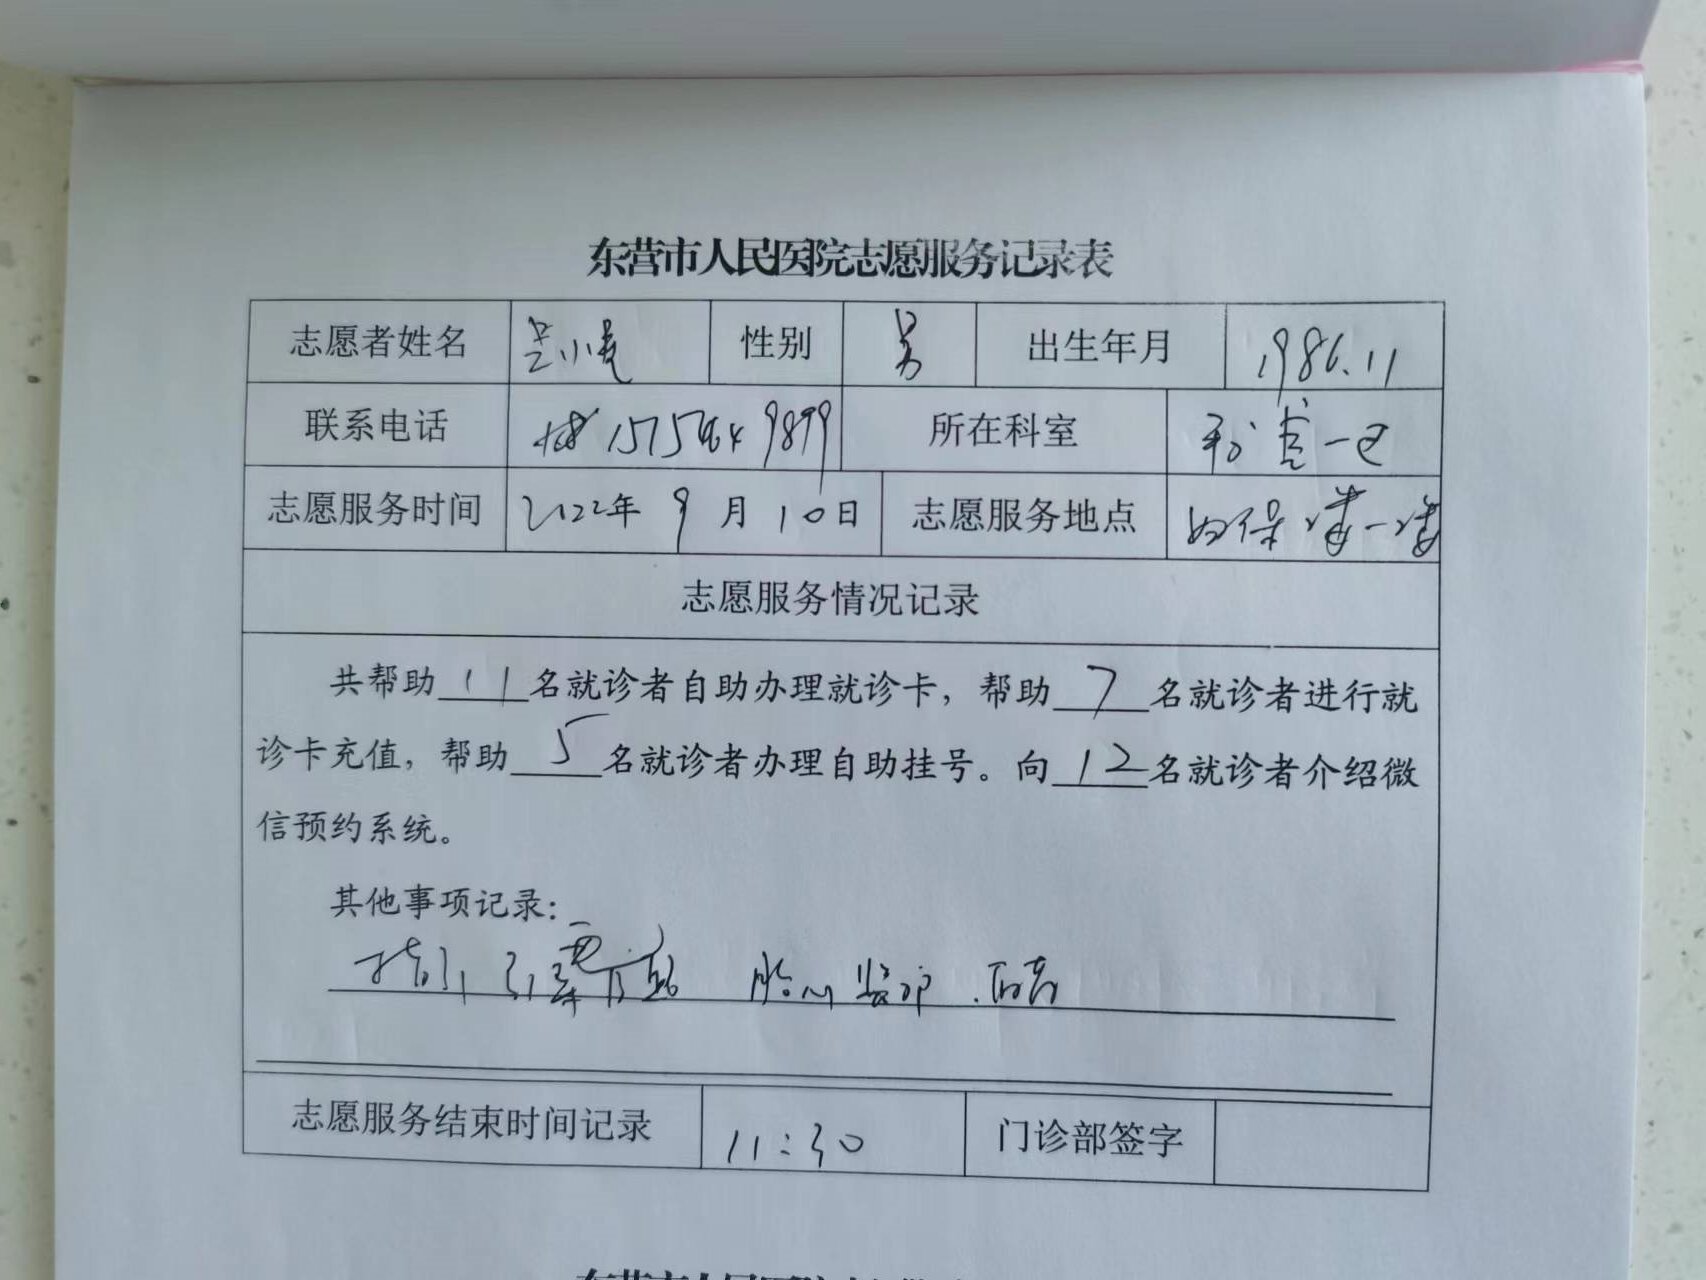 东营市人民医院志愿服务记录表
志愿者姓名 性别 男 出生年月 1986.11
联系电话 所在科室
志愿服务时间 2022年 9月 10日 志愿服务地点 妇保楼一楼
志愿服务情况记录
共帮助 11 名就诊者自助办理就诊卡，帮助 7 名就诊者进行就
诊卡充值，帮助 5 名就诊者办理自助挂号。向 12 名就诊者介绍微
信预约系统。
其他事项记录：
指引 胎心监护
志愿服务结束时间记录 11:30 门诊部签字